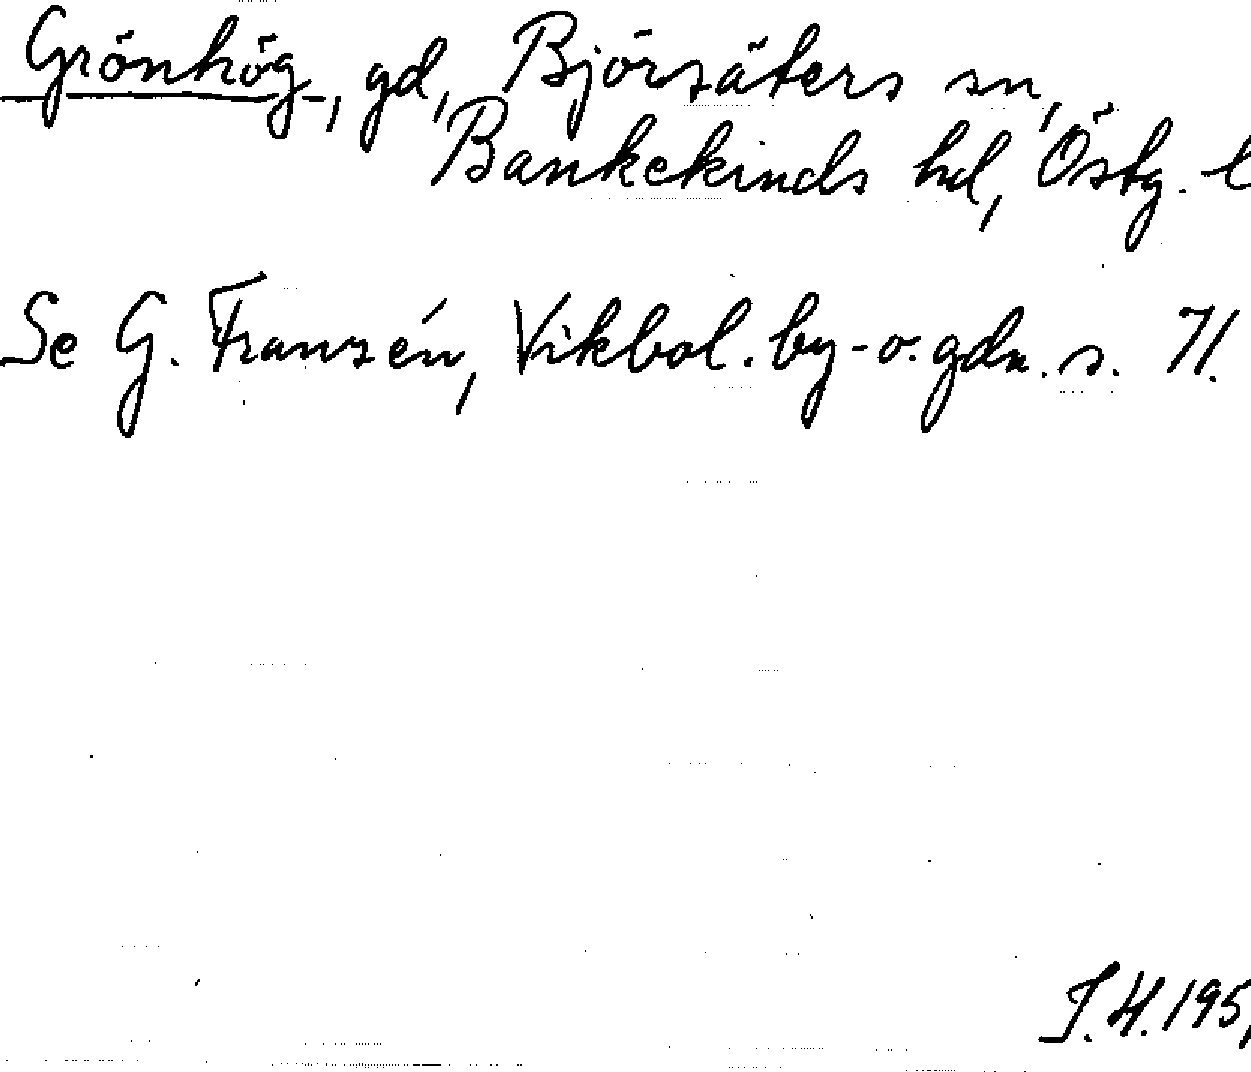 Grönhög, gd, Björsäters sn,
Bankekinds hd, Östg. l
Se G. Franzén, Vikbol. by- o. gdn. s. 71.
J.H. 195